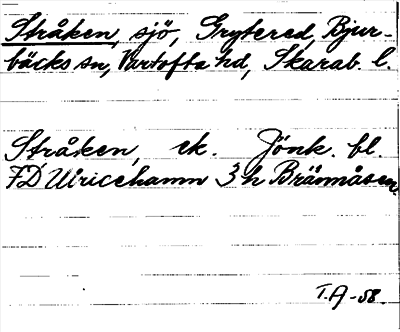 Stråken, sjö, Grytered, Bjur-
bäcks sn, Vartofta hd, Skarab. l.
Stråken, ek. Jönk. bl.
FD Ulricehamn 3 h Brännåsen.
T.A -58.